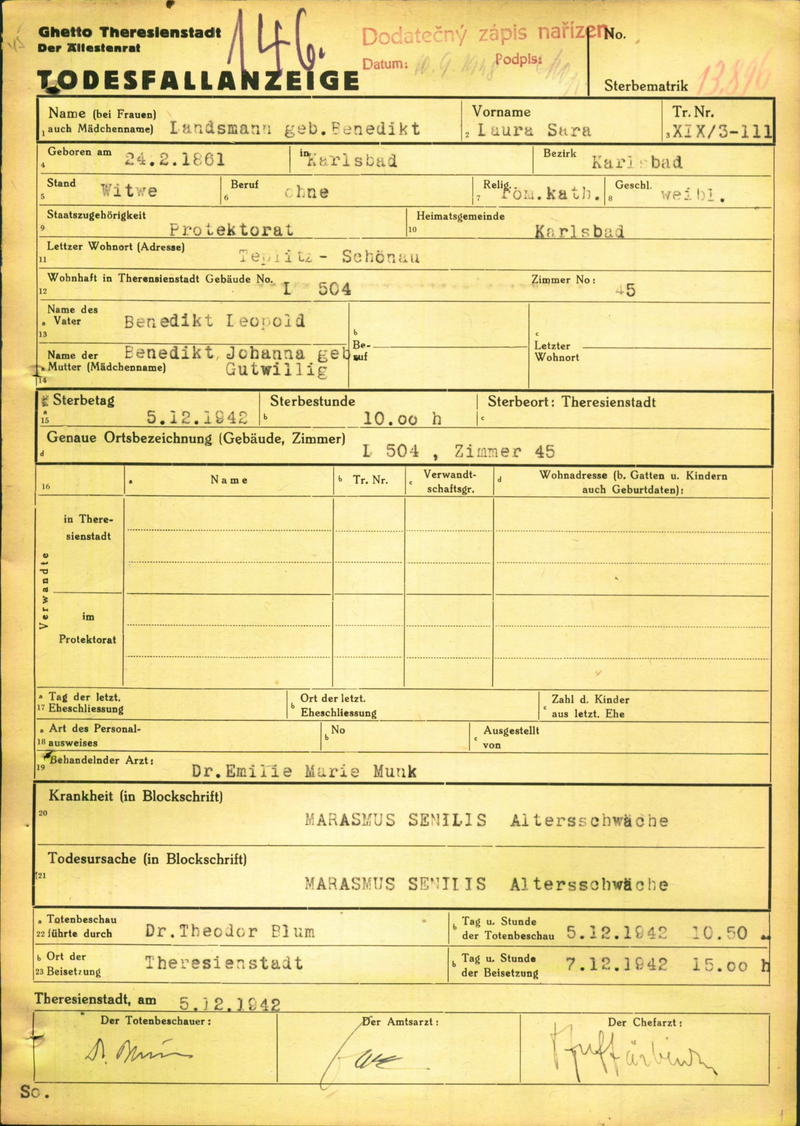 Ghetto Theresienstadt
Der Ältestenrat
146.
Dodatečný zápis nařízen
No.
Datum: 10.9.1948 Podpis:
TODESFALLANZEIGE
Sterbematrik 13.896
Name (bei Frauen)
1 auch Mädchenname) Landsmann geb.Benedikt
Vorname
2 Laura Sara
Tr. Nr.
3 XIX/3-111
Geboren am
4 24.2.1861
in Karlsbad
Bezirk Karlsbad
Stand
5 Witwe
Beruf
6 ohne
Relig.
7 röm.kath.
Geschl.
8 weibl.
Staatszugehörigkeit
9 Protektorat
Heimatsgemeinde
10 Karlsbad
Lettzer Wohnort (Adresse)
11 Teplitz- Schönau
Wohnhaft in Therensienstadt Gebäude No.
12 L 504
Zimmer No:
45
Name des
a Vater
13 Benedikt Leopold
b
Be-
ruf
c
Letzter
Wohnort
Name der
a Mutter (Mädchenname)
14 Benedikt, Johanna geb
Gutwillig
Sterbetag
a
15 5.12.1942
Sterbestunde
b 10.00 h
Sterbeort: Theresienstadt
c
Genaue Ortsbezeichnung (Gebäude, Zimmer)
d L 504 , Zimmer 45
16
a Name
b Tr. Nr.
c Verwandt-
schaftsgr.
d Wohnadresse (b. Gatten u. Kindern
auch Geburtdaten):
Verwandte
in There-
sienstadt
im
Protektorat
a Tag der letzt.
17 Eheschliessung
b Ort der letzt.
Eheschliessung
c Zahl d. Kinder
aus letzt. Ehe
a Art des Personal-
18 ausweises
b No
c Ausgestellt
von
Behandelnder Arzt:
19 Dr.Emilie Marie Munk
Krankheit (in Blockschrift)
20 MARASMUS SENILIS Altersschwäche
Todesursache (in Blockschrift)
21 MARASMUS SENILIS Altersschwäche
a Totenbeschau
22 führte durch Dr.Theodor Blum
b Tag u. Stunde
der Totenbeschau 5.12.1942 10.50
b Ort der
23 Beisetzung Theresienstadt
b Tag u. Stunde
der Beisetzung 7.12.1942 15.00 h
Theresienstadt, am 5.12.1942
Der Totenbeschauer:
Der Amtsarzt:
Der Chefarzt:
So.